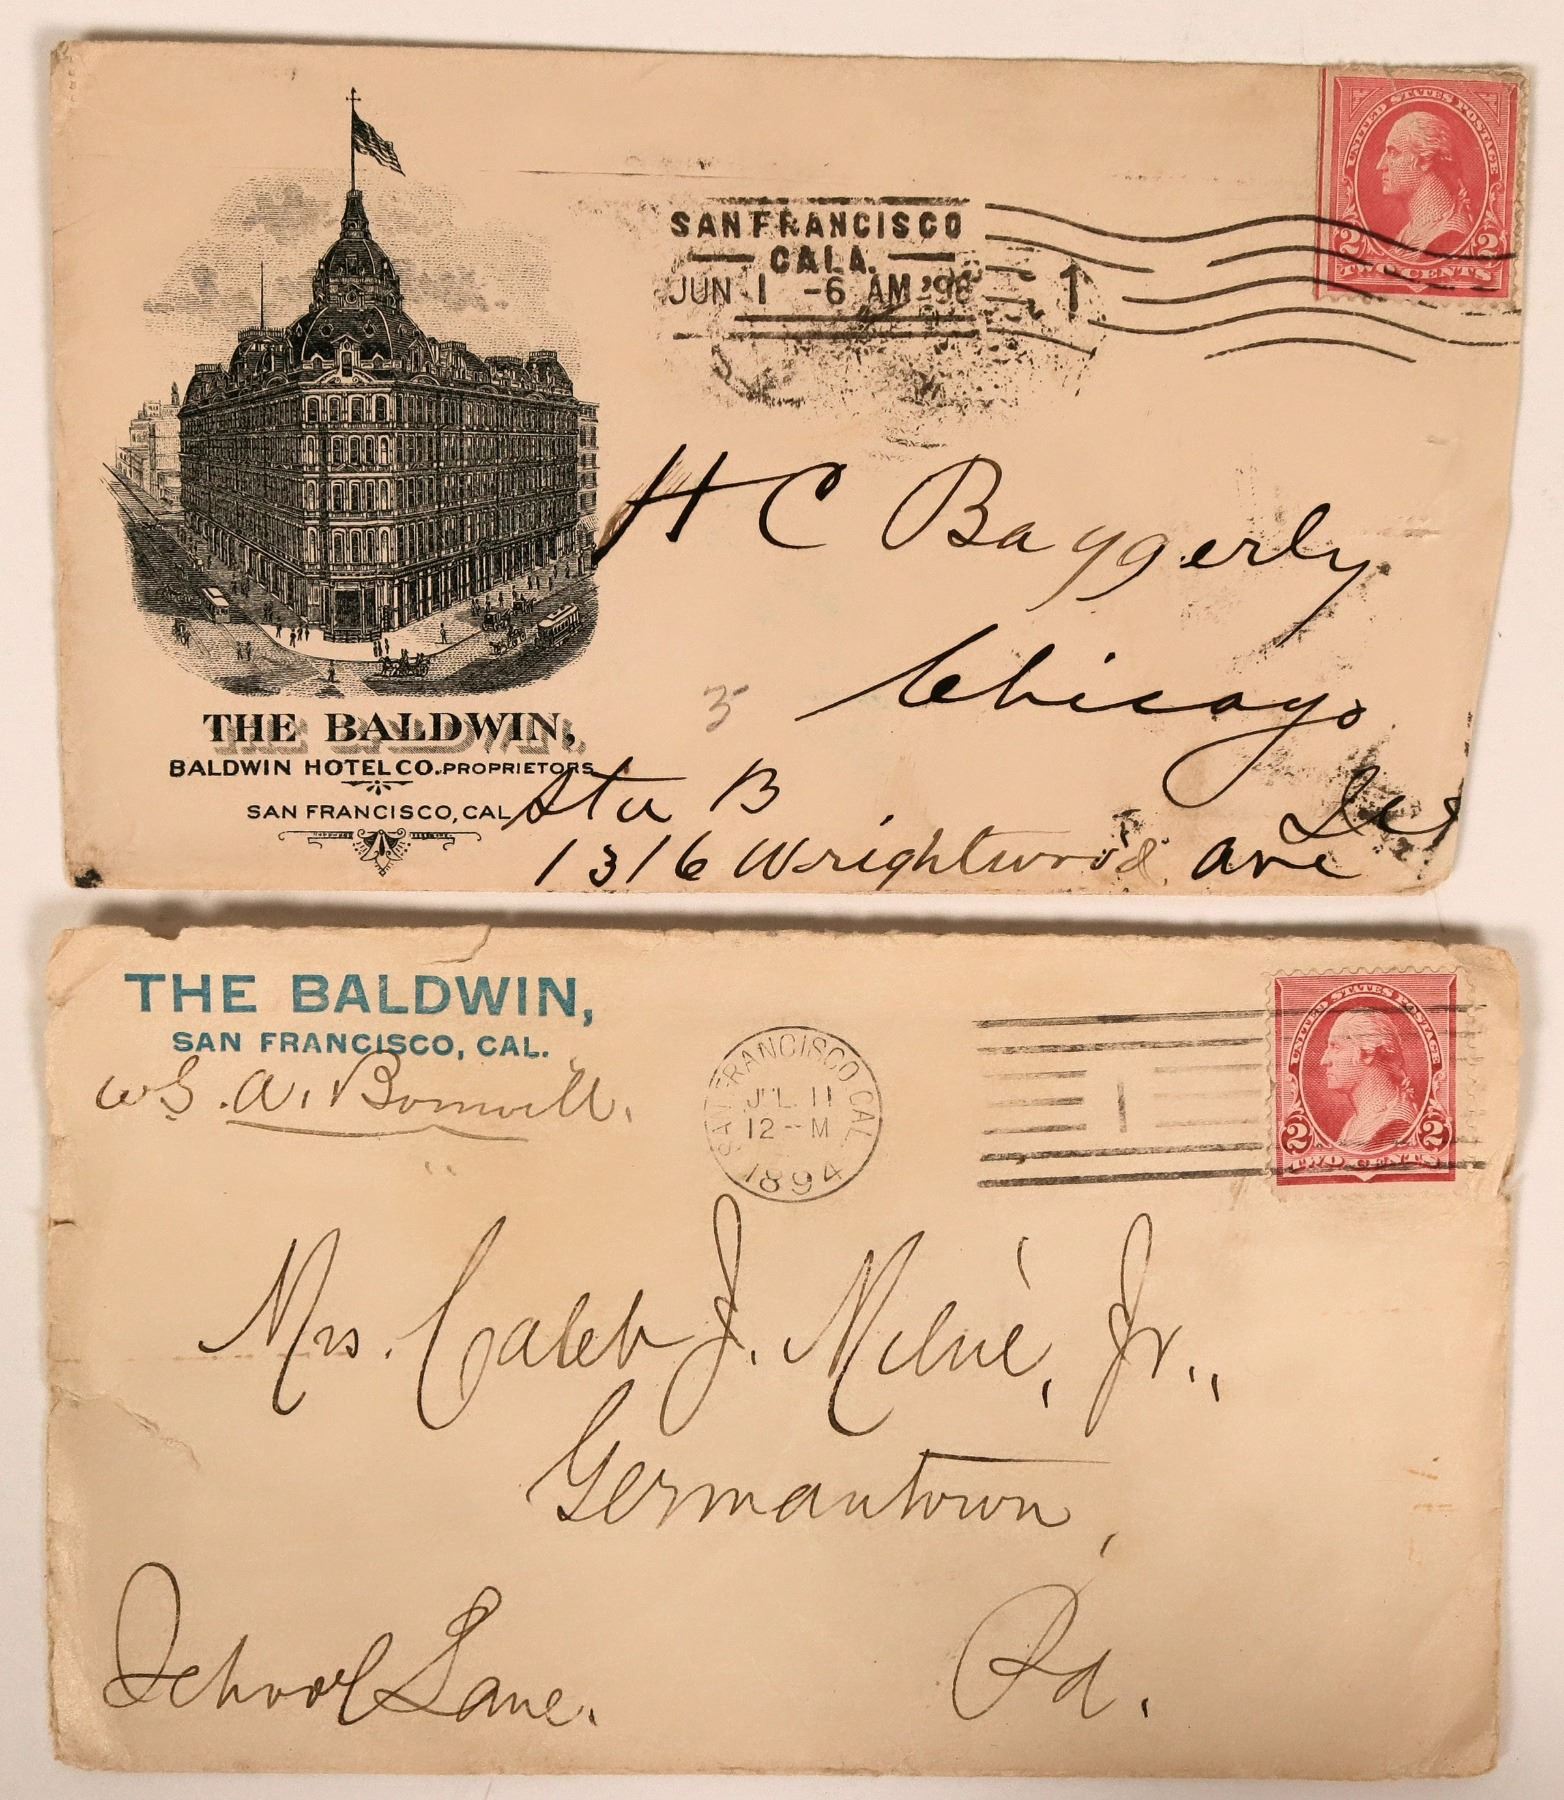 UNITED STATES POSTAGE
2 2
TWO CENTS
SAN FRANCISCO
CALA.
JUN 1 -6 AM '98
1
H C Baggerly
Chicago
3
THE BALDWIN,
BALDWIN HOTEL CO. PROPRIETORS
SAN FRANCISCO, CAL
Sta B
Ill
1316 Wrightwood ave
THE BALDWIN,
SAN FRANCISCO, CAL.
UNITED STATES POSTAGE
2 2
TWO CENTS
SAN FRANCISCO, CAL.
JUL 11
12 -M
1894
1
A. Bonwill.
Mrs. Caleb J. Milne, Jr.,
Germantown,
School Lane.
Pa.